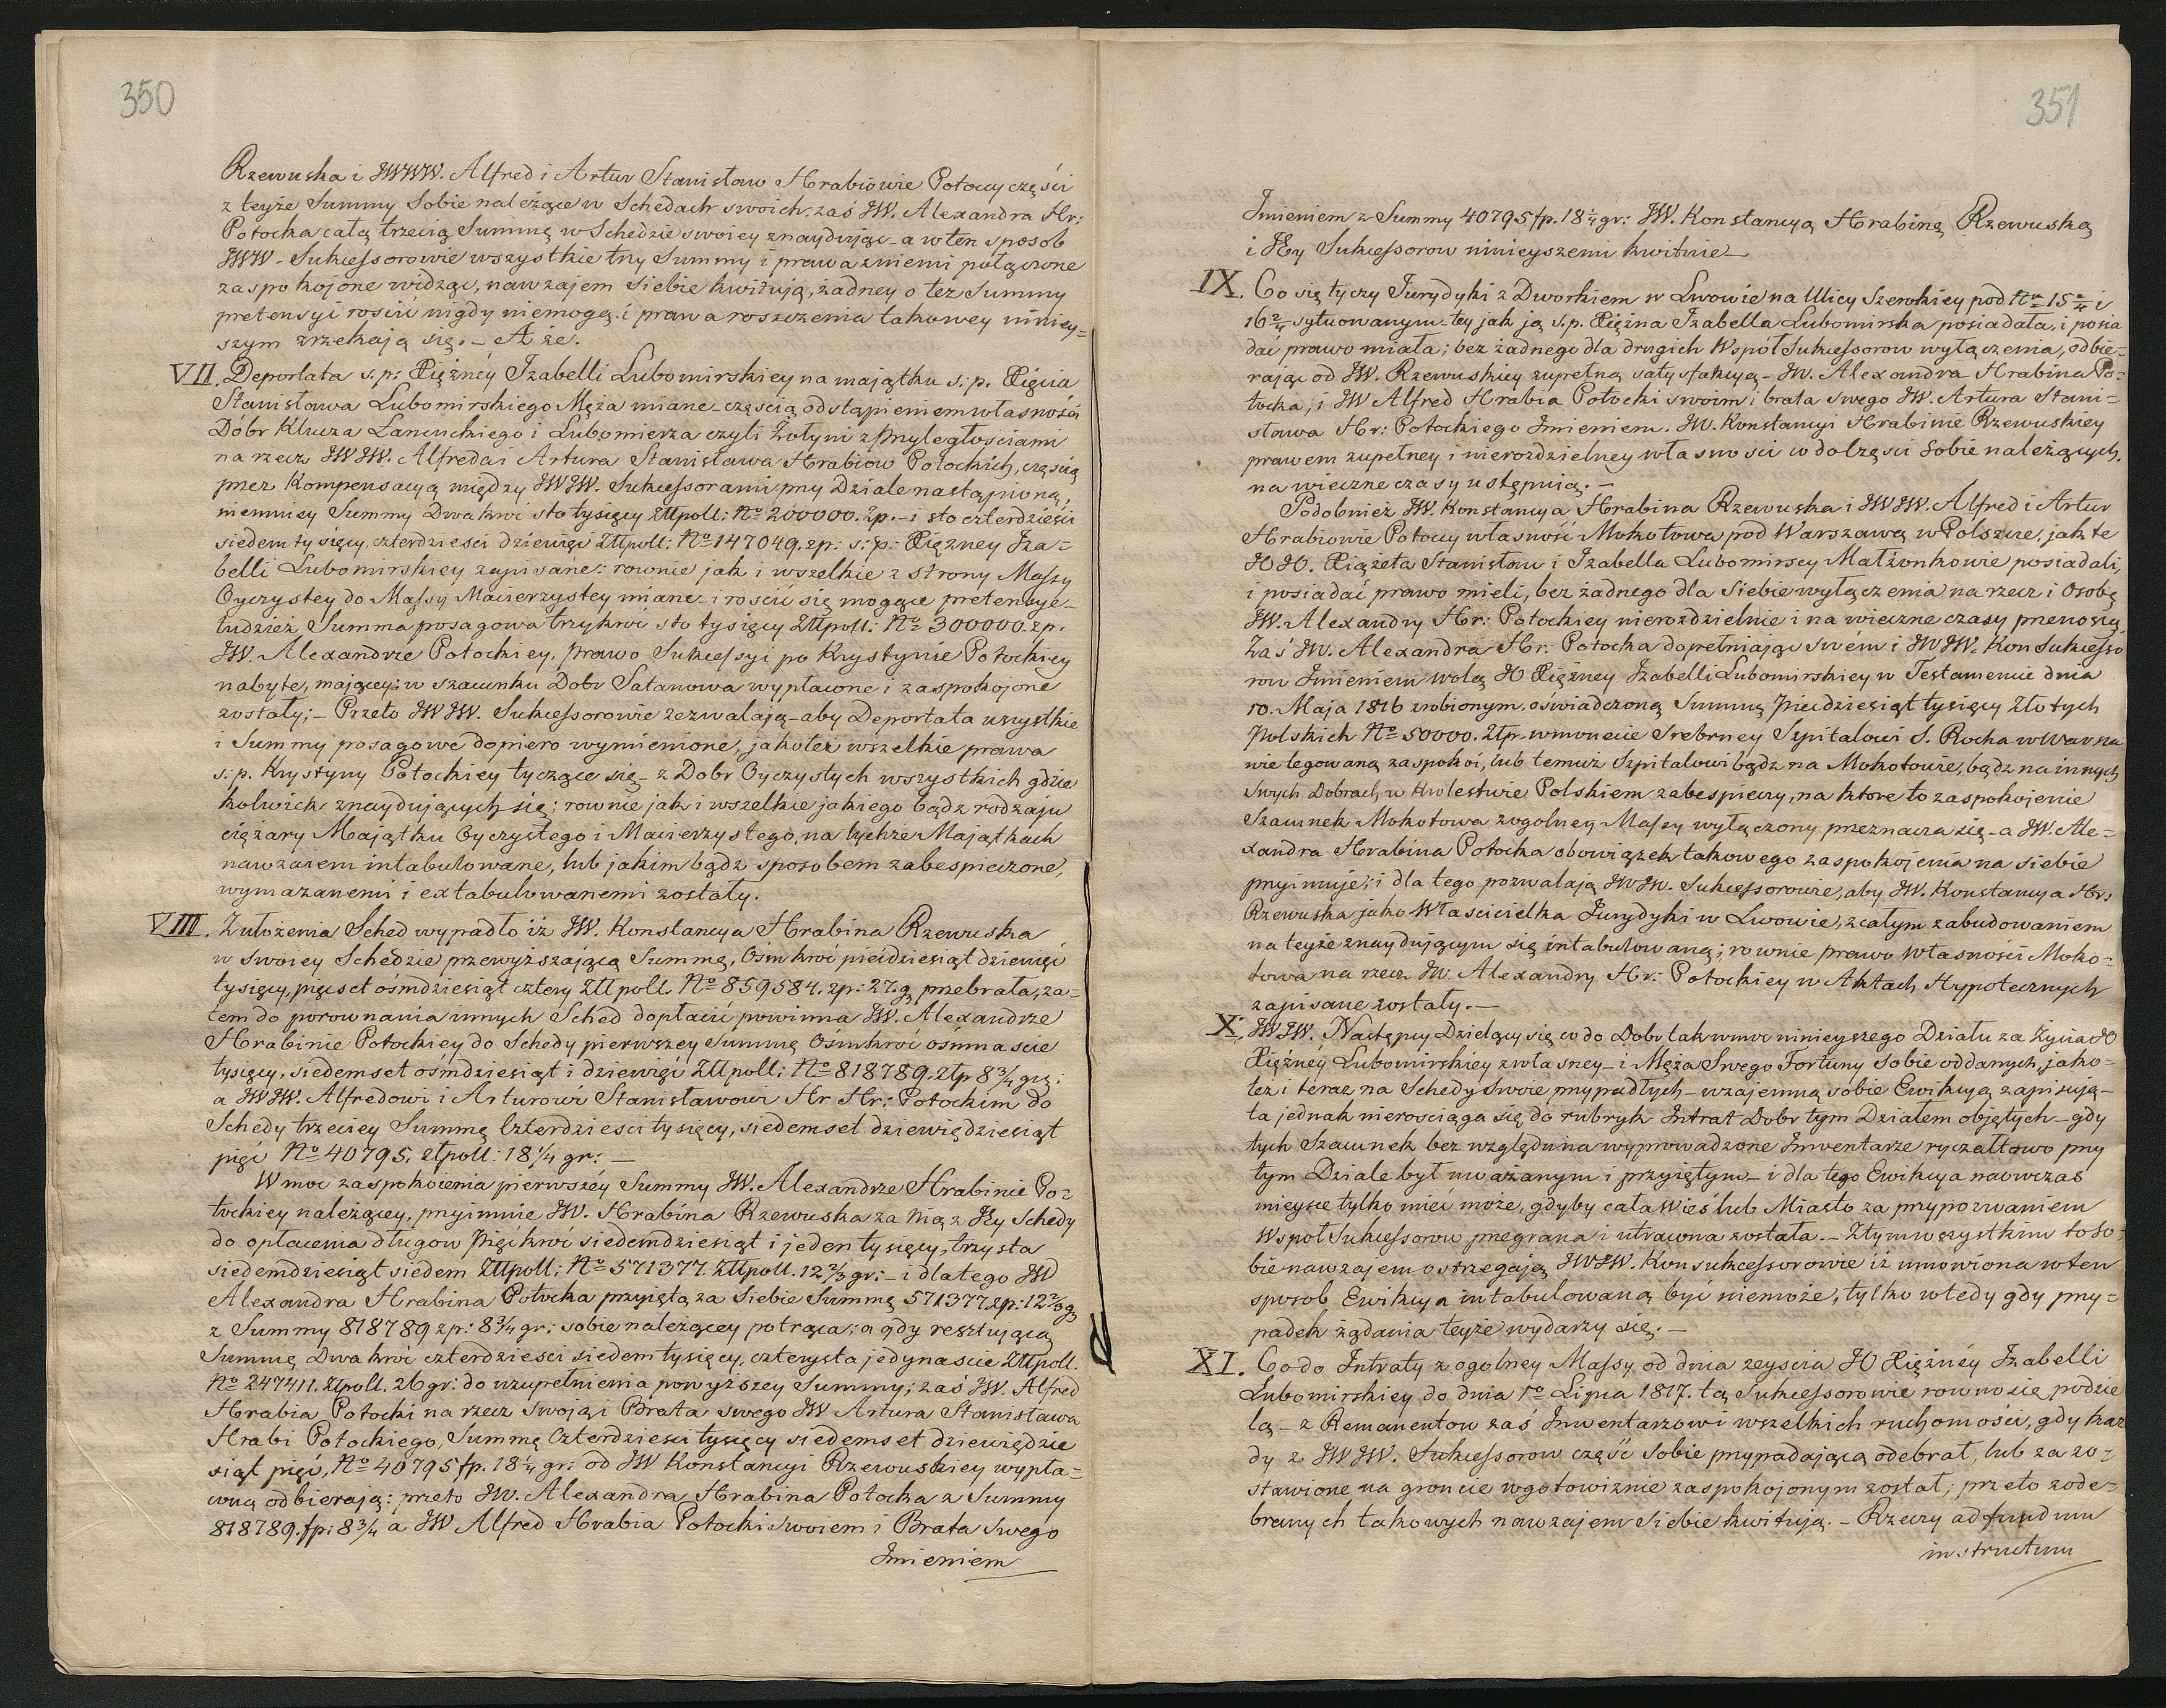 350
Rzewuska i JWWW. Alfred i Artur Stanisław Hrabiowie Potoccy części
z teyże Summy Sobie należące w Schedach swoich, zaś JW. Alexandra Hr:
Potocka całą trzecią Summę w Schedzie swoiey znayduiąc – a w ten sposob
JWW – Sukcessorowie wszystkie trzy Summy i prawa z niemi połączone
zaspokojone widząc, nawzajem siebie kwitują, żadney o też Summy
pretensyi rościć nigdy niemogą i prawa roszczenia takowey niniey=
szym zrzekają się. – A że.
VII. Deportata s. p: Xiężnéy Izabelli Lubomirskiey na majątku s: p. Xięcia
Stanisława Lubomirskiego Męża miane – częścią odstąpieniem własności
Dóbr Klucza Łancuckiego i Lubomierza czyli Żołyni z Przyległościami
na rzecz JWJW. Alfreda i Artura Stanisława Hrabiow Potockich, częścią
przez Kompensacyą między JWJW. Sukcessorami przy Dziale nastąpioną,
niemniey Summy Dwakroć sto tysięcy Złłpoll: No 200000. zp. – i sto czterdzieści
siedem tysięcy, czterdzieści dziewięć Złłpoll: No 147049. zp: s: p: Xiężney Iza=
belli Lubomirskiey zapisane: rownie jak i wszelkie z strony Massy
Oyczystey do Massy Macierzystey miane i rościć się mogące pretensye –
tudzież Summa posagowa trzykroć sto tysięcy Złłpoll: No 300000. zp.
JW. Alexandrze Potockiey, prawo Sukcessyi po Krystynie Potockiey
nabyte, maiącey: w szacunku Dobr Satanowa wypłacone i zaspokojone
zostały; – Przeto JWJW. Sukcessorowie zezwalają – aby Deportata wszystkie
i Summy posagowe dopiero wymienione, jakoteż wszelkie prawa
s: p. Krystyny Potockiey tyczące się – z Dobr Oyczystych wszystkich gdzie
kolwiek znaydujących się; rownie jak i wszelkie jakiego bądź rodzaju
ciężary Majątku Oyczystego i Macierzystego, na tychże Majątkach
nawzaiem intabulowane, lub jakim bądź sposobem zabespieczone,
wymazanemi i extabulowanemi zostały.
VIII. Z ułożenia Sched wypadło iż JW. Konstancya Hrabina Rzewuska
w swoiey Schedzie przewyższaiącą Summę, Ośmkroć pięćdziesiąt dziewięć
tysięcy, pięćset ośmdziesiąt cztery Złłpoll. No 859584. zp: 27. g przebrała, za=
tem do porownania innych Sched dopłacić powinna JW. Alexandrze
Hrabinie Potockiey do Schedy pierwszey Summę Ośmkroć ośmnaście
tysięcy, siedemset ośmdziesiąt i dziewięć Złłpoll: No 818789. złp 8 3/4 grz:
a JWJW. Alfredowi i Arturowi Stanisławowi Hr Hr: Potockim do
Schedy trzeciey Summę Czterdzieści tysięcy, siedemset dziewięćdziesiąt
pięć No 40795. złpoll: 18 1/4 gr: –
W moc zaspokoienia pierwszéy Summy JW. Alexandrze Hrabinie Po=
tockiey należącey, przyimuie JW. Hrabina Rzewuska za Nią z Jey Schedy
do opłacenia długow Pięćkroć siedemdziesiąt i jeden tysięcy, trzysta
siedemdziesiąt siedem Złłpoll: No 571377. Złłpoll. 12 2/3 gr: – i dlatego JW
Alexandra Hrabina Potocka przyiętą za siebie Summę 571377. zp: 12 2/3 g
z Summy 818789 zp: 8 3/4 gr: sobie należącey potrąca; a gdy resztującą
Summę Dwakroć czterdzieści siedem tysięcy, czterysta jedynaście Złłpoll.
No 247411. Złpoll. 26 gr: do uzupełnienia powyższey Summy; zaś JW. Alfred
Hrabia Potocki na rzecz swoją i Brata swego JW Artura Stanisława
Hrabi Potockiego, Summę Czterdzieści tysięcy siedemset dziewięćdzie
siąt pięć, No 40795 fp. 18 1/4 gr: od JW Konstancyi Rzewuskiey wypła=
coną odbierają: przeto JW. Alexandra Hrabina Potocka z Summy
818789. fp: 8 3/4 a JW Alfred Hrabia Potocki swoiem i Brata swego
Imieniem
351
Imieniem z Summy 40795 fp. 18 1/4 gr: JW. Konstancyą Hrabinę Rzewuską
i Jey Sukcessorow ninieyszemi kwituie –
IX. Co się tyczy Jurydyki z Dworkiem w Lwowie na Ulicy Szerokiey pod Nro 15 2/4 i
16 2/4 sytuowanym – tey jak ją s. p. Xiężna Izabella Lubomirska posiadała, i posia
dać prawo miała; bez żadnego dla drugich Współ Sukcessorow wyłączenia, odbie=
raiąc od JW. Rzewuskiey zupełną satysfakcyą – JW. Alexandra Hrabina Po=
tocka, i JW Alfred Hrabia Potocki swoim i brata swego JW. Artura Stani=
sława Hr: Potockiego Imieniem. JW. Konstancyi Hrabinie Rzewuskiey
prawem zupełney i nierozdzielney własności co do części Sobie należących.
na wieczne czasy ustępuią. –
Podobnież JW. Konstancya Hrabina Rzewuska i JWJW. Alfred i Artur
Hrabiowie Potoccy własność Mokotowa pod Warszawą w Polszcze, jak te
JOJO. Xiążęta Stanisław i Izabella Lubomirscy Małżonkowie posiadali,
i posiadać prawo mieli, bez żadnego dla Siebie wyłączenia na rzecz i Osobę
JW. Alexandry Hr: Potockiey nierozdzielnie i na wieczne czasy przenoszą,
Zaś JW. Alexandra Hr: Potocka dopełniając swém i JWJW. Konsukcesso
row Imieniem wolą JO Xiężney Izabelli Lubomirskiey w Testamencie dnia
10. Maja 1816 zrobionym, oświadczoną Summę Pięćdziesiąt tysięcy Złotych
Polskich No 50000. Złp. w monecie Srebrney Szpitalowi S. Rocha w Warsza
wie legowaną zaspokoi, lub temuż Szpitalowi bądź na Mokotowie, bądź na innych
Swych Dobrach w Krolestwie Polskiem zabespieczy, na ktore to zaspokojenie
Szacunek Mokotowa z ogolney Massy wyłączony przeznacza się – a JW. Ale=
xandra Hrabina Potocka obowiązek takowego zaspokojenia na siebie
przyimuje; i dla tego pozwalają JWJW. Sukcessorowie, aby JW. Konstancya Hr:
Rzewuska jako Właścicielka Jurydyki w Lwowie, z całym zabudowaniem
na teyże znaydującym się intabulowaną; rownie prawo własności Moko=
towa na rzecz JW. Alexandry Hr: Potockiey w Aktach Hypotecznych
zapisane zostały. –
X. JWJW. Następcy Dzielący się co do Dobr tak w moc ninieyszego Działu za Życia JO
Xiężney Lubomirskiey z własney – i Męża Swego Fortuny sobie oddanych, jako=
też i teraz na Schedy swoie przypadłych – wzajemną sobie Ewikcyą zapisują –
ta jednak nierosciąga się do rubryk Intrat Dobr tym Działem objętych – gdy
tych Szacunek bez względu na wyprowadzone Inwentarze ryczałtowo przy
tym Dziale był uważanym i przyiętym – i dla tego Ewikcya naowczas
mieysce tylko mieć może, gdyby cała Wieś lub Miasto za przypozwaniem
Współ Sukcessorow przegrana i utracona została. – Z tym wszystkim to so=
bie nawzajem ostrzegają JWJW. Konsukcessorowie iż umowiona w ten
sposob Ewikcya intabulowaną być niemoże, tylko wtedy gdy przy=
padek żądania teyże wydarzy się. –
XI. Co do Intraty z ogolney Massy od dnia zeyscia JO Xiężnéy Izabelli
Lubomirskiey do dnia 1o Lipca 1817. tą Sukcessorowie rowno się podzie
lą – z Remanentow zaś Inwentarzowi wszelkich ruchomości, gdy każ
dy z JWJW. Sukcessorow część Sobie przypadającą odebrał, lub za zo=
stawione na groncie w gotowiznie zaspokojonym został; przeto z ode=
branych takowych nawzajem Siebie kwitują. – Rzeczy ad fundum
instructum